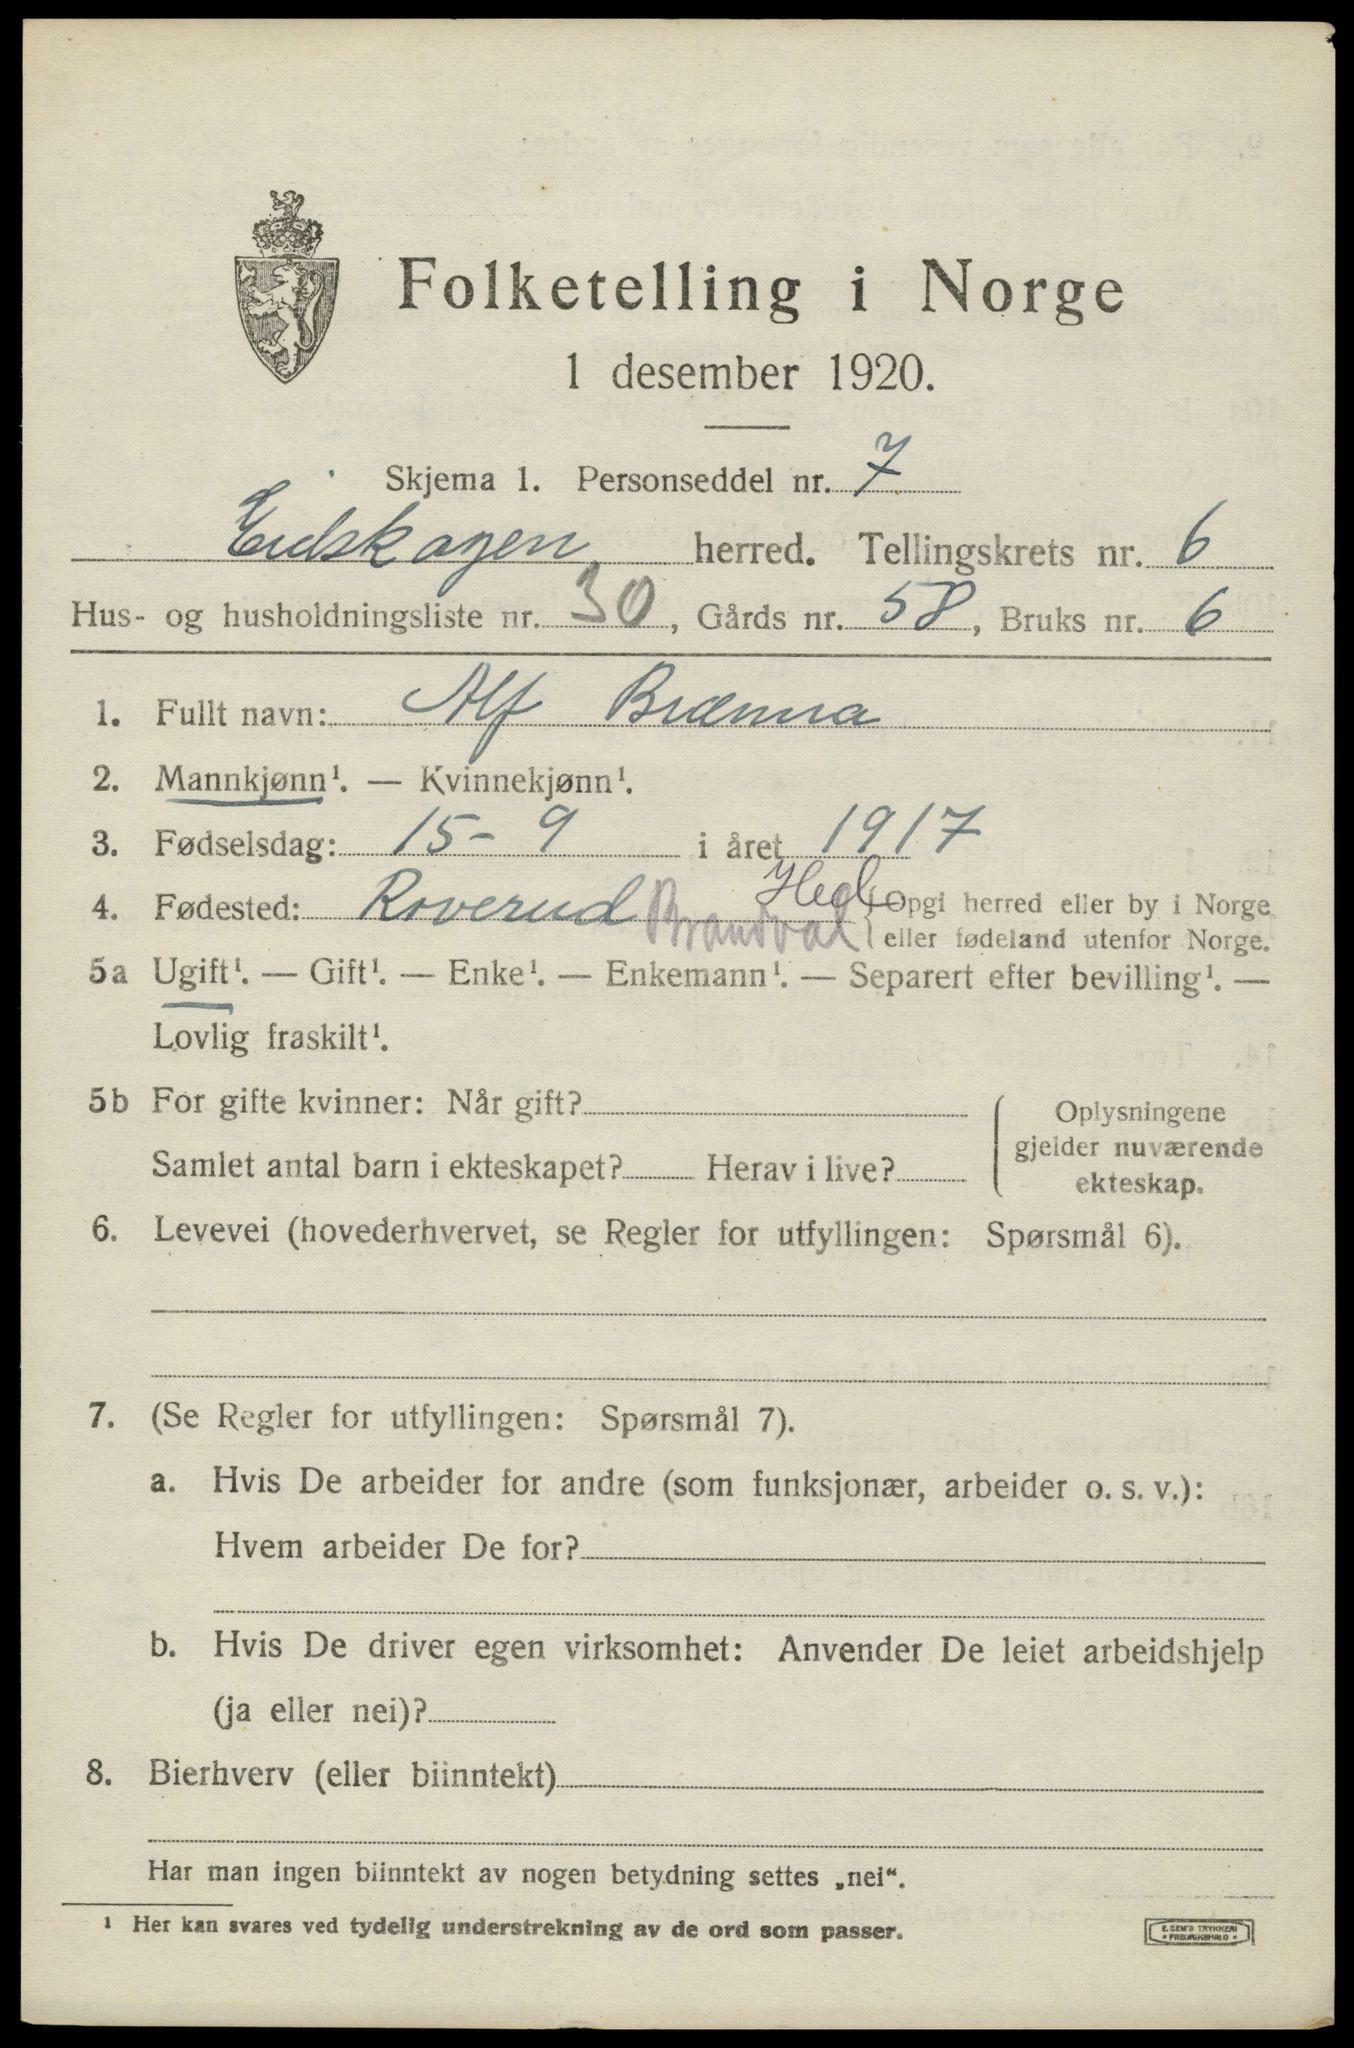 Folketelling i Norge
1 desember 1920.
Skjema 1. Personseddel nr. 7
Eidskogen herred. Tellingskrets nr. 6
Hus- og husholdningsliste nr. 30, Gårds nr. 58, Bruks nr. 6
1. Fullt navn: Alf Brænna
2. Mannkjønn¹. — Kvinnekjønn¹.
3. Fødselsdag: 15-9 i året 1917
4. Fødested: Roverud Brandval Hed. Opgi herred eller by i Norge
eller fødeland utenfor Norge.
5a Ugift¹. — Gift¹. — Enke¹. — Enkemann¹. — Separert efter bevilling¹. —
Lovlig fraskilt¹.
5b For gifte kvinner: Når gift?
Samlet antal barn i ekteskapet? Herav i live?
Oplysningene
gjelder nuværende
ekteskap.
6. Levevei (hovederhvervet, se Regler for utfyllingen: Spørsmål 6).
7. (Se Regler for utfyllingen: Spørsmål 7).
a. Hvis De arbeider for andre (som funksjonær, arbeider o. s. v.):
Hvem arbeider De for?
b. Hvis De driver egen virksomhet: Anvender De leiet arbeidshjelp
(ja eller nei)?
8. Bierhverv (eller biinntekt)
Har man ingen biinntekt av nogen betydning settes „nei“.
¹ Her kan svares ved tydelig understrekning av de ord som passer.
E. SEM'S TRYKKERI
FREDRIKSHALD